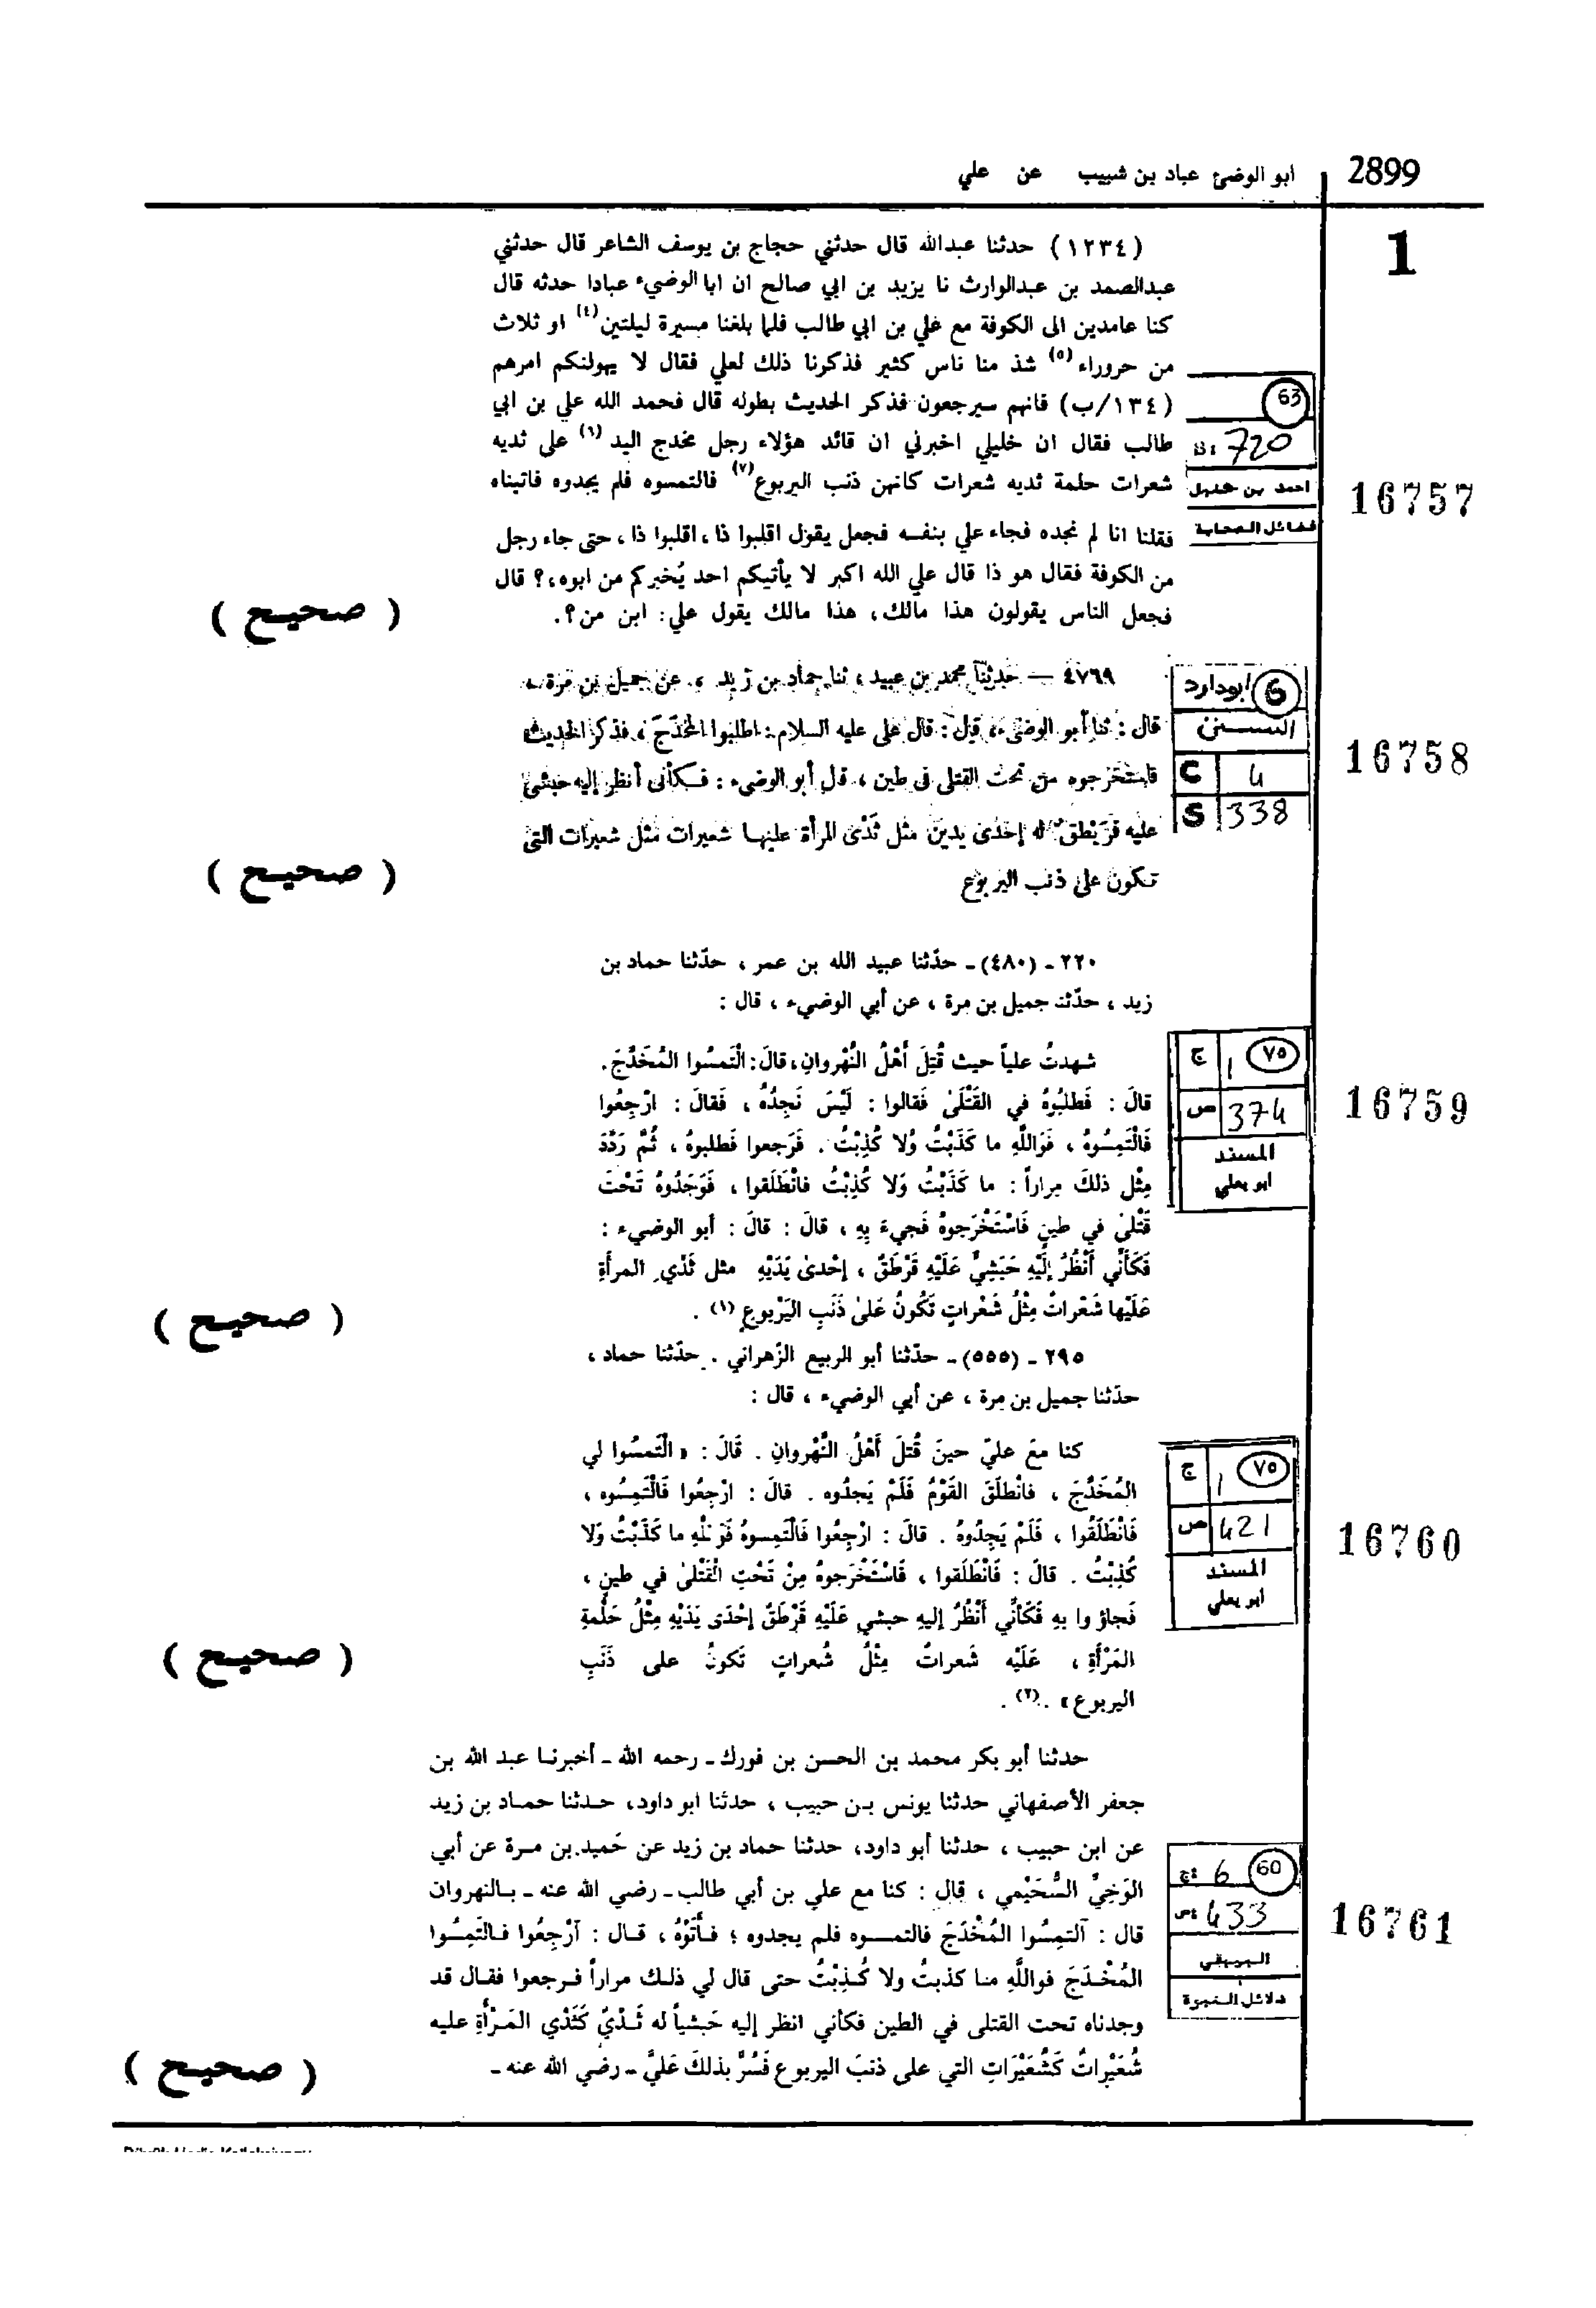 2899
ابو الوضئ عباد بن شبيب عن علي
1
(١٢٣٤) حدثنا عبدالله قال حدثني حجاج بن يوسف الشاعر قال حدثني
عبدالصمد بن عبدالوارث نا يزيد بن ابي صالح ان ابا الوضيء عبادا حدثه قال
كنا عامدين الى الكوفة مع علي بن ابي طالب فلما بلغنا مسيرة ليلتين(٤) او ثلاث
من حروراء(٥) شذ منا ناس كثير فذكرنا ذلك لعلي فقال لا يهولنكم امرهم
(١٣٤/ب) فانهم سيرجعون فذكر الحديث بطوله قال فحمد الله علي بن ابي
طالب فقال ان خليلي اخبرني ان قائد هؤلاء رجل مخدج اليد(٦) على ثديه
شعرات حلمة ثديه شعرات كانهن ذنب اليربوع(٧) فالتمسوه فلم يجدوه فاتيناه
فقلنا انا لم نجده فجاء علي بنفسه فجعل يقول اقلبوا ذا، اقلبوا ذا، حتى جاء رجل
من الكوفة فقال هو ذا قال علي الله اكبر لا يأتيكم احد يُخبركم من ابوه،؟ قال
فجعل الناس يقولون هذا مالك، هذا مالك يقول علي: ابن من؟.
( صحيح )
63
S: 720
احمد بن حنبل
فضائل الصحابة
16757
٤٧٦٩ — حدثنا محمد بن عبيد، ثنا حماد بن زيد، عن جميل بن مرة
قال: ثنا أبو الوضىء، قال: قال على عليه السلام: اطلبوا المُخْدَجَ، فذكر الحديث
فاستخرجوه من تحت القتلى فى طين، قال أبو الوضىء: فكأنى أنظر إليه حبشى
عليه قُرَيْطَقٌ له إحْدَى يدين مثل ثَدْى المرأة عليها شعيرات مثل شعيرات التى
تكون على ذنب اليربوع
( صحيح )
6 ابوداود
السنن
C 4
S 338
16758
٢٢٠ ـ (٤٨٠) ـ حدّثنا عبيد الله بن عمر، حدّثنا حماد بن
زيد، حدّثنا جميل بن مرة، عن أبي الوضيء، قال:
شهدتُ علياً حيث قُتِلَ أَهْلُ النَّهْروانِ، قالَ: الْتَمِسُوا المُخَدَّجَ.
قالَ: فَطلبُوهُ في القَتْلَىٰ فقالوا: لَيْسَ نَجِدُهُ، فَقالَ: ارْجِعُوا
فَالْتَمِسُوهُ، فَوَاللَّهِ ما كَذَبْتُ وُلا كُذِبْتُ. فَرَجعوا فَطلبوهُ، ثُمَّ رَدَّدَ
مِثْل ذلكَ مِراراً: ما كَذَبْتُ وَلا كُذِبْتُ فانْطَلَقوا، فَوَجَدُوهُ تَحْتَ
قَتْلىٰ في طينٍ فَاسْتَخْرَجوهُ فَجيءَ بِهِ، قالَ: قالَ: أبو الوضيء:
فَكَأَنِّي أَنْظُرُ إِلَيْهِ حَبَشِيٌّ عَلَيْهِ قَرْطَقٌ، إحْدىٰ يَدَيْهِ مثل ثَدْيِ المرأَةِ
عَلَيْها شَعْراتٌ مِثْلُ شَعْراتٍ تَكُونُ عَلىٰ ذَنَبِ اليَرْبوعِ(١).
( صحيح )
٧٥ ج 1
ص 374
المسند
ابو يعلي
16759
٢٩٥ ـ (٥٥٥) ـ حدّثنا أبو الربيع الزهراني. حدّثنا حماد،
حدّثنا جميل بن مرة، عن أبي الوضيء، قال:
كنا مَعَ عليّ حينَ قُتلَ أَهْلُ النَّهْروانِ. قَالَ: « الْتَمِسُوا لي
المُخَدَّجَ، فانْطلَقَ القَوْمُ فَلَمْ يَجدُوه. قالَ: ارْجِعُوا فَالْتَمِسُوه،
فَانْطَلَقُوا، فَلَمْ يَجِدُوهُ. قالَ: ارْجِعُوا فَالْتَمِسوهُ فَوَاللَّهِ ما كَذَبْتُ وَلا
كُذِبْتُ. قالَ: فَانْطَلَقوا، فَاسْتَخْرَجوهُ مِنْ تَحْتِ الْقَتْلىٰ في طينٍ،
فَجاؤوا بهِ فَكَأَنِّي أَنْظُرُ إليهِ حبشي عَلَيْهِ قَرْطَقٌ إحْدَى يَدَيْهِ مِثْلُ حَلْمةِ
المَرْأَةِ، عَلَيْه شَعراتٌ مِثْلُ شَعراتٍ تَكونُ على ذَنَبِ
اليربوع ».(٢).
( صحيح )
٧٥ ج 1
ص 421
المسند
ابو يعلي
16760
حدثنا أبو بكر محمد بن الحسن بن فورك ـ رحمه الله ـ أخبرنا عبد الله بن
جعفر الأصفهاني حدثنا يونس بن حبيب، حدثنا ابو داود، حدثنا حماد بن زيد
عن ابن حبيب، حدثنا أبو داود، حدثنا حماد بن زيد عن حَميد بن مرة عن أبي
الوَخِيِّ السُّحَيْمي، قال: كنا مع علي بن أبي طالب ـ رضي الله عنه ـ بالنهروان
قال: آلتمِسُوا المُخْدَجَ فالتمسوه فلم يجدوه؛ فأتَوْهُ، قال: آرْجِعُوا فالتَمِسُوا
المُخْدَجَ فواللَّهِ ما كذبتُ ولا كُذِبْتُ حتى قال لي ذلك مراراً فرجعوا فقال قد
وجدناه تحت القتلى في الطين فكأني انظر إليه حَبشياً له ثَدْيٌ كَثَدْي المَرْأَةِ عليه
شُعَيْراتٌ كَشُعَيْرَاتِ التي على ذنَبِ اليربوع فَسُرَّ بذلكَ عَليٌّ ـ رضي الله عنه ـ
( صحيح )
60 ج: 6
ص: 433
البيهقي
دلائل النبوة
16761